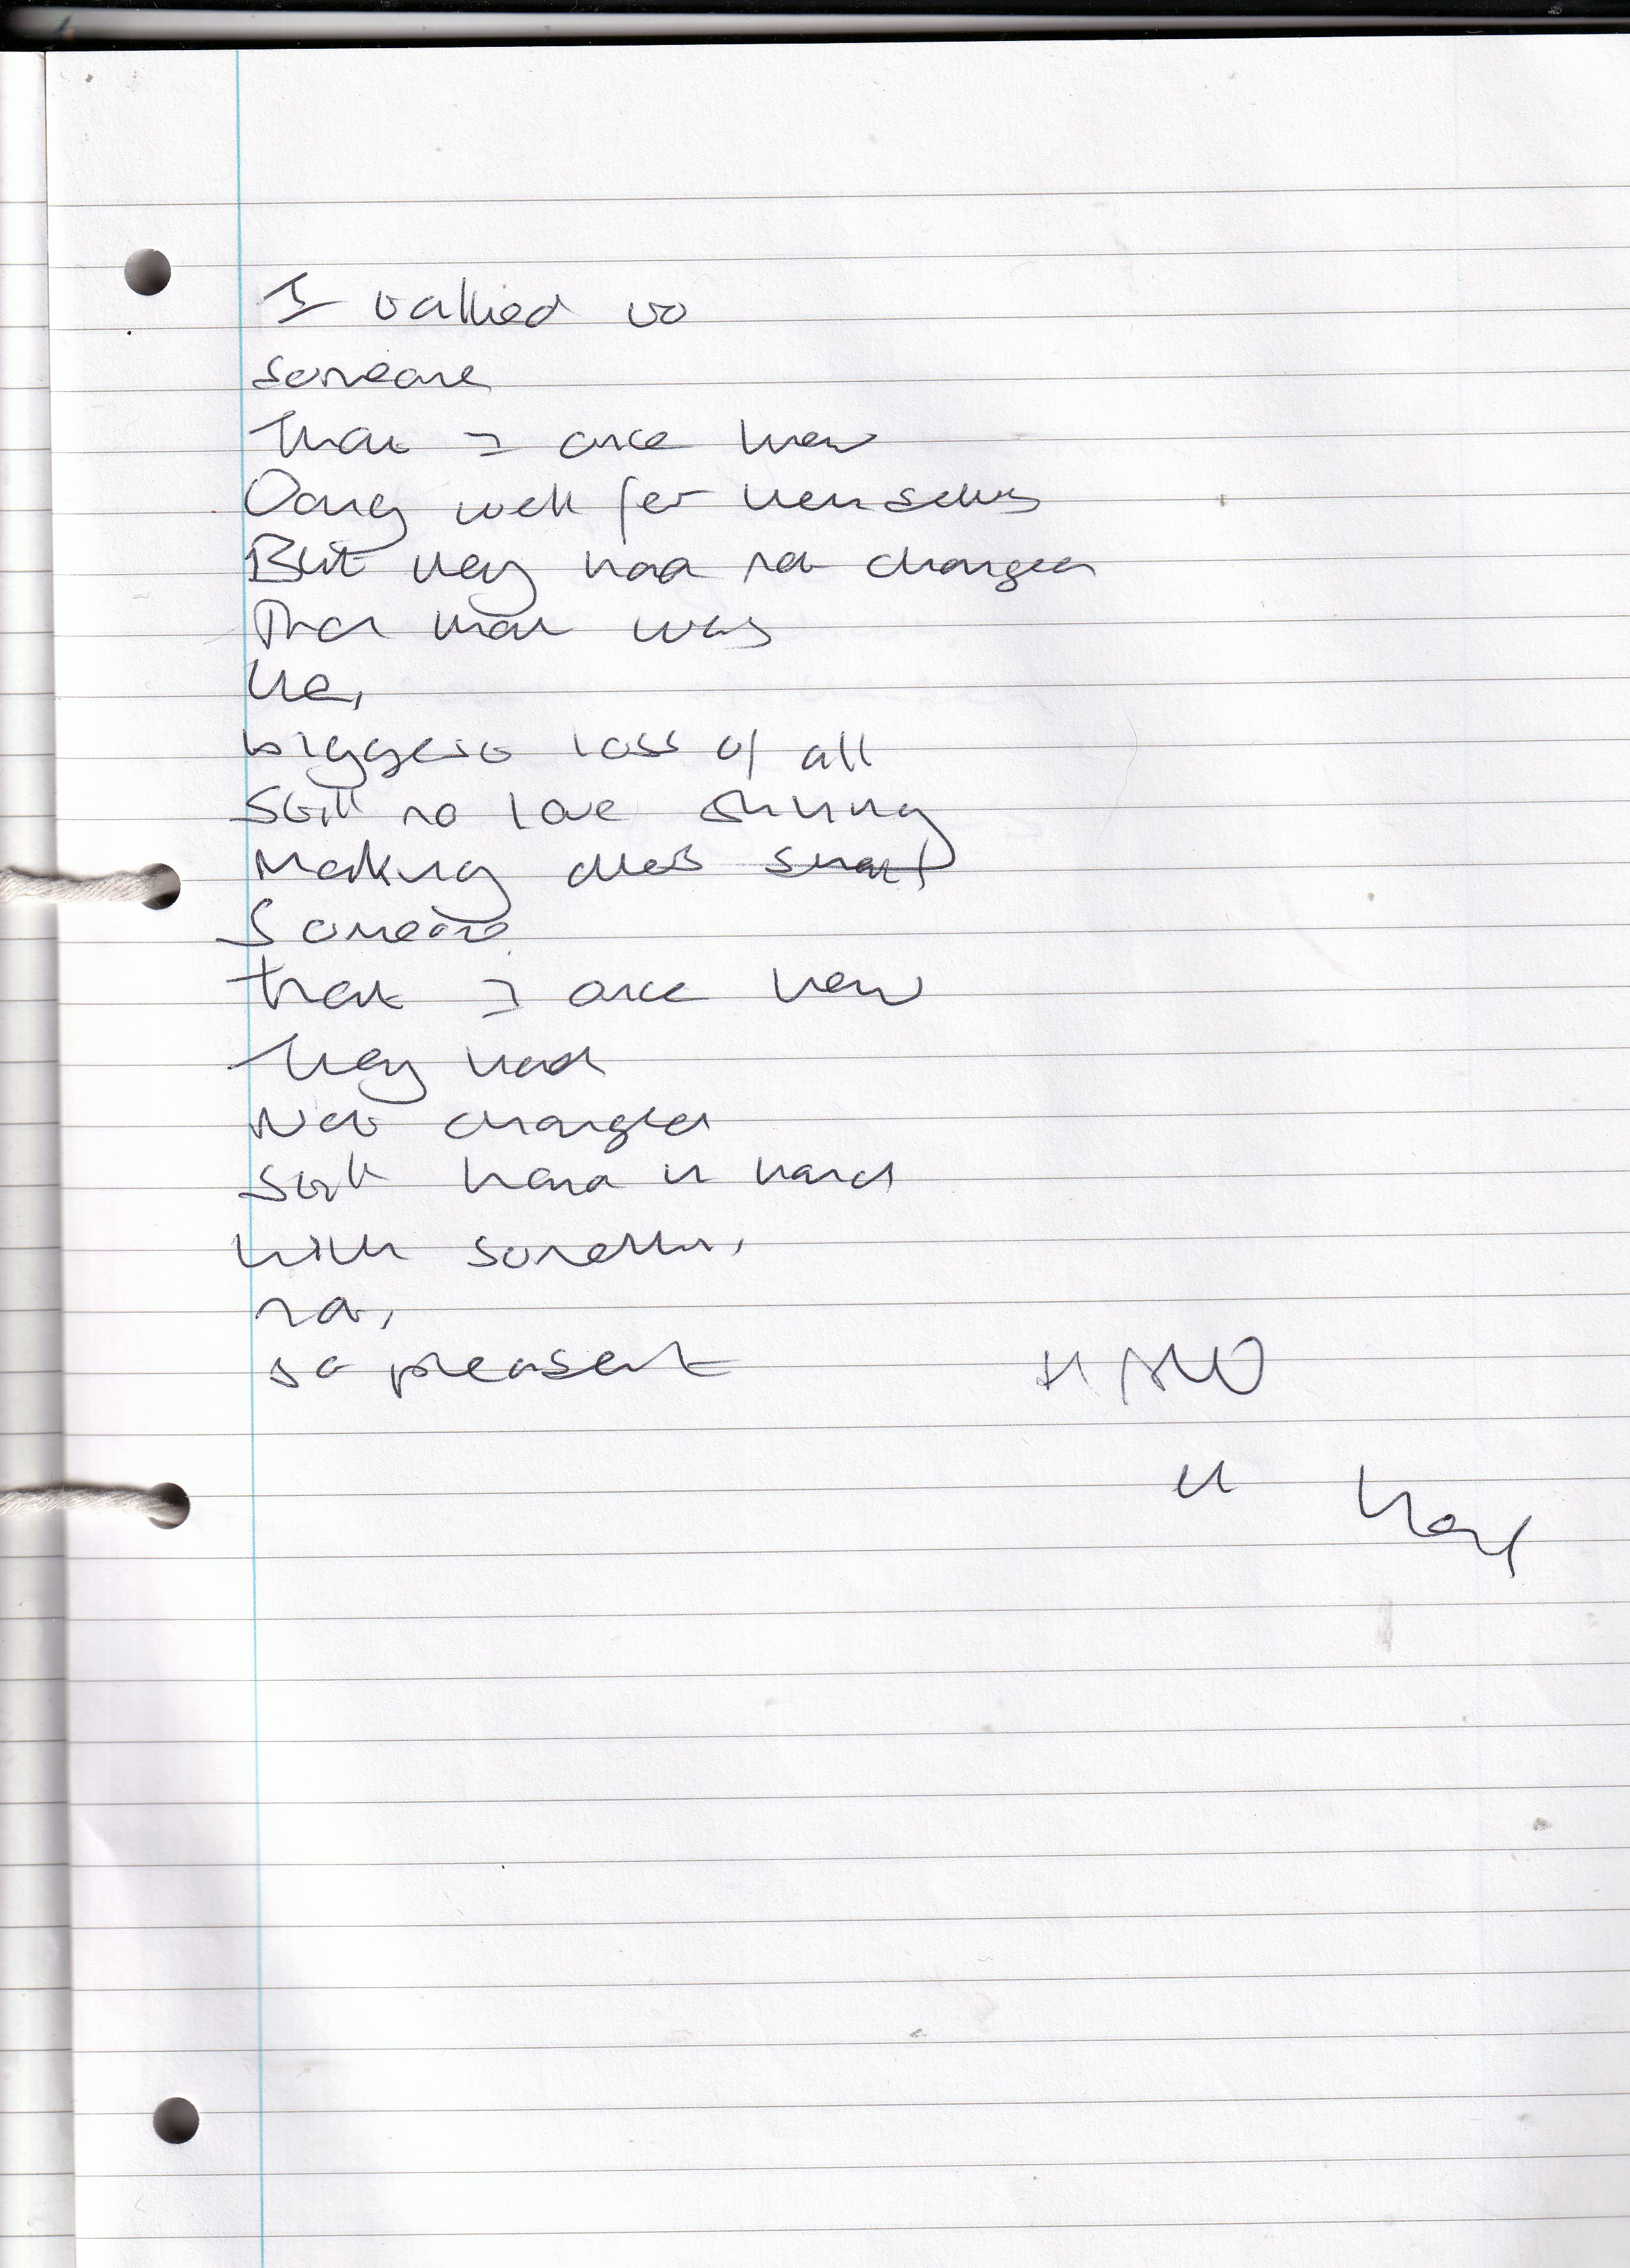 I talked to
someone
That I once knew
Doing well for themselves
But they had not changed
That that was
the,
biggest loss of all
Still no love shining
Making others
Someone
that I once knew
They had
Not changed
Still hand in hand
with
not,
so pleasent
HAND
in hand